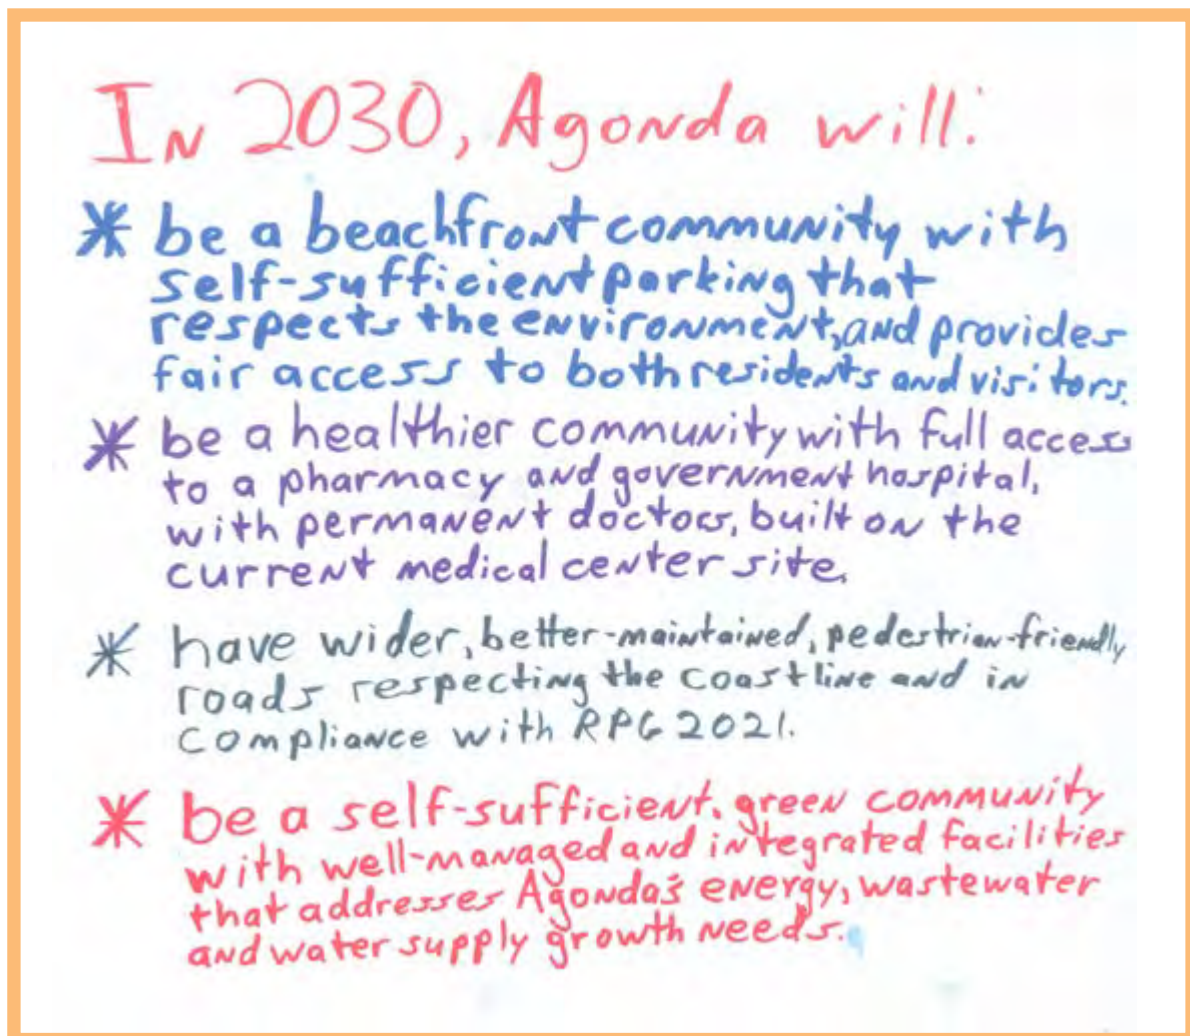 In 2030, Agonda will:
* be a beachfront community with
self-sufficient parking that
respects the environment, and provides
fair access to both residents and visitors.
* be a healthier community with full access
to a pharmacy and government hospital,
with permanent doctors, built on the
current medical center site.
* have wider, better-maintained, pedestrian-friendly
roads respecting the coastline and in
compliance with RPG 2021.
* be a self-sufficient, green community
with well-managed and integrated facilities
that addresses Agonda's energy, wastewater
and water supply growth needs.